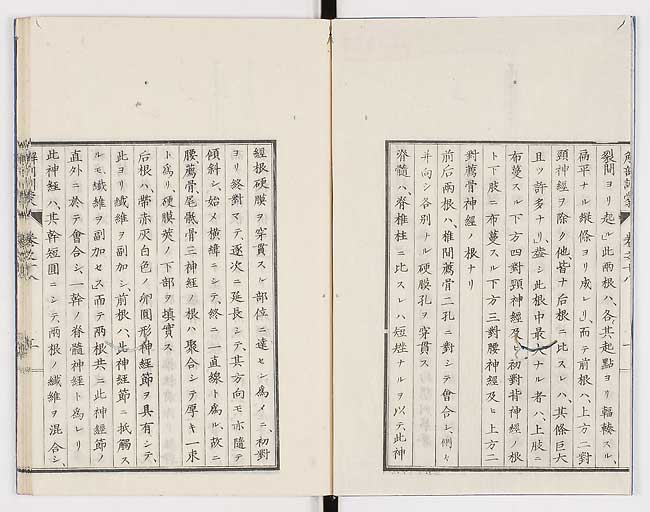 裂間ヨリ起ル此両根ハ、各其起點ヨリ輻輳スル、
扁平ナル縦條ヨリ成レリ、而テ前根ハ、上方二對
頸神経ヲ除ク他、皆ナ后根ニ比スレハ、其條巨大
且ッ許多ナリ、蓋シ此根中最大ナル者ハ、上肢ニ
布蔓スル下方四對頸神経及ヒ初對背神経ノ根
ト下肢ニ布蔓スル下方三對腰神経及ヒ上方二
對薦骨神経ノ根ナリ
前后両根ハ、椎間薦骨二孔ニ對シテ會合シ、側々
并向シ各別ナル硬膜孔ヲ穿貫ス
脊髓ハ、脊椎柱ニ比スレハ短矬ナルヲ以テ、此神
経根硬膜ヲ穿貫スル部位ニ達センカ為メニ、初對
ヨリ終對マテ、逐次ニ延長シテ、其方向モ亦隨テ
傾斜シ、始メ横緯ニシテ、終ニ一直線ト為ル、故ニ
腰、薦骨、尾骶骨三神経ノ根ハ聚合シテ厚キ一束
ト為リ、硬膜莢ノ下部ヲ填實ス
后根ハ、帯赤灰白色ノ卵圓形神経節ヲ具有シテ、
此ヨリ纎維ヲ副加シ、前根ハ、此神経節ニ抵觸ス
ルモ、纎維ヲ副加セス、而テ両根共ニ此神経節ノ
直外ニ於テ會合シ、一幹ノ脊髓神経ト為レリ
此神経ハ、其幹短圓ニシテ、両根ノ纎維ヲ混合シ、